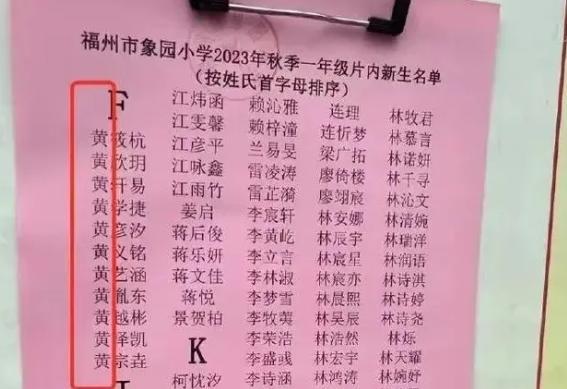 福州市象园小学2023年秋季一年级片内新生名单
（按姓氏首字母排序）
F
黄筱杭
黄欣玥
黄开易
黄学捷
黄彦汐
黄义铭
黄艺涵
黄胤东
黄越彬
黄泽凯
黄宗垚
江炜函
江雯馨
江彦平
江咏鑫
江雨竹
姜启
蒋后俊
蒋乐妍
蒋文佳
蒋悦
景贺柏
K
柯忱汐
赖沁雅
赖梓潼
兰易旻
雷凌涛
雷芷漪
李宸轩
李黄屹
李立言
李林淑
李梦雪
李牧荑
李荣浩
李盛彧
李诗涵
连理
连忻梦
梁广拓
廖倚楼
廖翊宸
林安娜
林辰宇
林宸星
林宸亦
林晨熙
林昊辰
林浩然
林宏宇
林鸿涛
林牧君
林慕言
林诺妍
林千寻
林沁文
林清婉
林瑞洋
林润语
林诗淇
林诗婷
林诗尧
林烁
林天耀
林婉妤